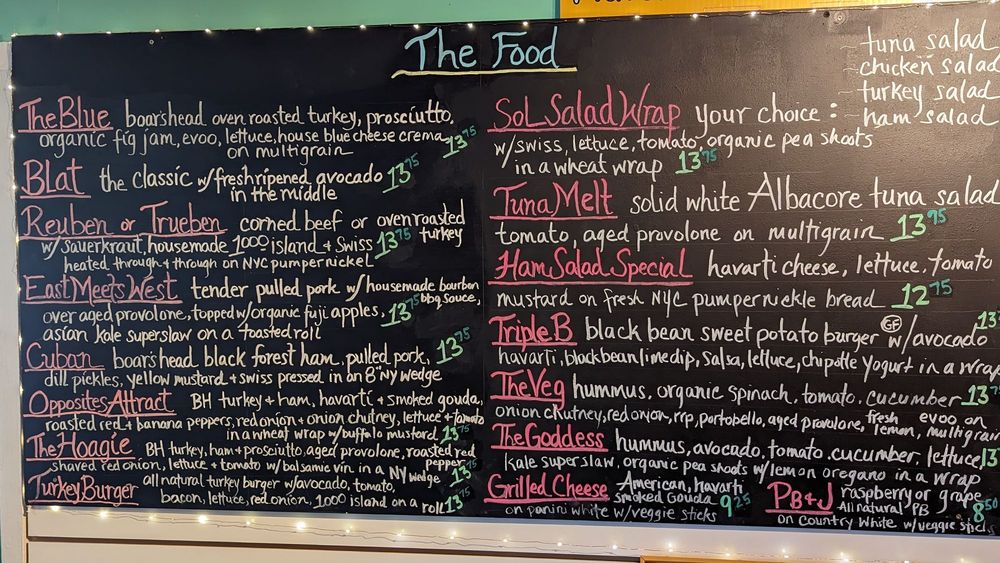 The Food
The Blue boarshead oven roasted turkey, prosciutto,
organic fig jam, evoo, lettuce, house blue cheese crema
on multigrain 13 75
BLat the classic w/fresh ripened avocado
in the middle 13 75
Reuben or Trueben corned beef or oven roasted
turkey
w/ sauerkraut, housemade 1000 island + Swiss 13 75
heated through + through on NYC pumpernickel
East Meets West tender pulled pork w/ housemade bourbon
bbq sauce,
over aged provolone, topped w/ organic fuji apples, 13 75
asian kale superslaw on a toasted roll
Cuban boar's head black forest ham, pulled pork, 13 75
dill pickles, yellow mustard + swiss pressed in an 8" NY wedge
Opposites Attract BH turkey + ham, havarti + smoked gouda,
roasted red + banana peppers, red onion + onion chutney, lettuce + tomato
in a wheat wrap w/ buffalo mustard 13 75
The Hoagie BH turkey, ham + prosciutto, aged provolone, roasted red
pepper,
shaved red onion, lettuce + tomato w/ balsamic vin in a NY wedge 13 75
Turkey Burger all natural turkey burger w/avocado, tomato,
bacon, lettuce, red onion, 1000 island on a roll 13 75
- tuna salad
- chicken salad
- turkey salad
- ham salad
SoL Salad Wrap your choice :
w/swiss, lettuce, tomato, organic pea shoots
in a wheat wrap 13 75
Tuna Melt solid white Albacore tuna salad
tomato, aged provolone on multigrain 13 95
Ham Salad Special havarti cheese, lettuce, tomato
mustard on fresh NYC pumpernickle bread 12 75
Triple B black bean sweet potato burger GF w/avocado 13
havarti, black bean lime dip, salsa, lettuce, chipotle yogurt in a wrap
The Veg hummus, organic spinach, tomato, cucumber 13
onion chutney, red onion, rrp, portobello, aged provolone, fresh lemon, evoo on multigrain
The Goddess hummus, avocado, tomato, cucumber, lettuce, 13
kale super slaw, organic pea shoots w/ lemon oregano in a wrap
Grilled Cheese American, havarti
smoked Gouda
on panini white w/ veggie sticks 9 25
PB+J raspberry or grape
All natural PB 8 50
on country white w/ veggie sticks